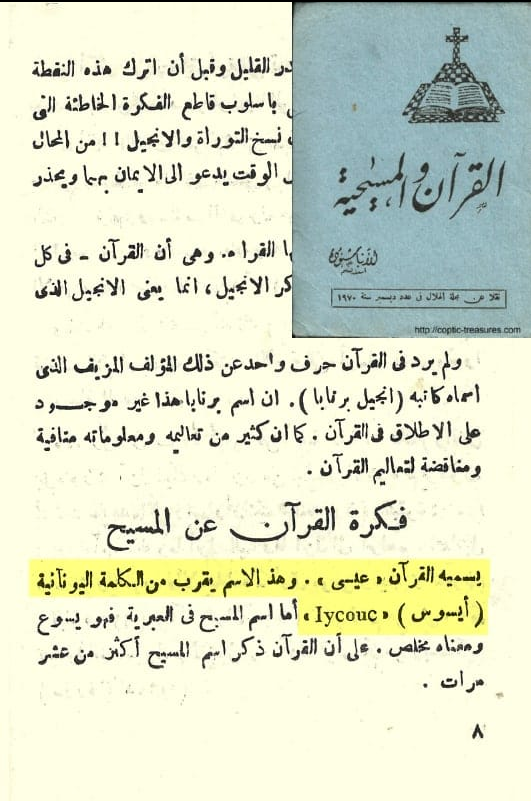 در القليل وقبل أن اترك هذه النقطة
باسلوب قاطع الفكرة الخاطئة التى
نسخ التوراة والانجيل !! من المحال
الوقت يدعو الى الايمان بهما ويحذر
القراء. وهى أن القرآن - فى كل
كر الانجيل ، انما يعنى الانجيل الذى
القرآن والمسيحية
الأنبا شنوده
نقلا عن مجلة الهلال فى عدد ديسمبر سنة ١٩٧٠
http://coptic-treasures.com
ولم يرد فى القرآن حرف واحد عن ذلك المؤلف المزيف الذى
اسماه كاتبه (انجيل برنابا). ان اسم برنابا هذا غير موجود
على الاطلاق فى القرآن . كما ان كثير من تعاليمه ومعلوماته منافية
ومناقضة لتعاليم القرآن .
فكرة القرآن عن المسيح
يسميه القرآن « عيسى » . وهذ الاسم يقرب من الكلمة اليونانية
( أيسوس ) « Iycouc » أما اسم المسيح فى العبرية فهو يسوع
ومعناه مخلص . على أن القرآن ذكر اسم المسيح أكثر من عشر
مرات .
٨